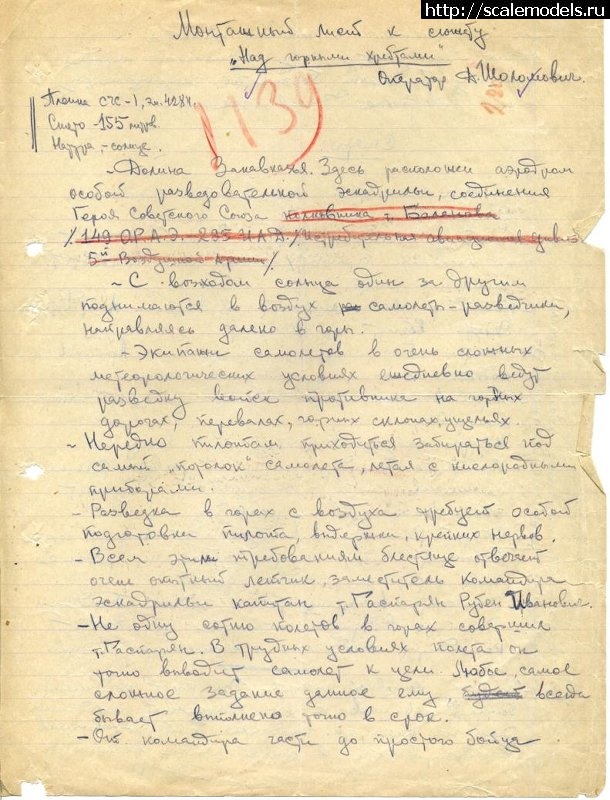 http://scalemodels.ru
Монтажный лист к сюжету
„Над горными хребтами“
Оператор Д. Шоломович.
1139
Пленка СЧС-1, эм. 4284.
Снято - 155 метров.
Натура, - солнце.
- Долина Закавказья. Здесь расположен аэродром
особой разведовательной эскадрильи, соединения
Героя Советского Союза полковника т. Баланова
/149 О.Р.А.Э. 295 И.А.Д. /Истребительная авиационная дивиз
5й Воздушной Армии/
- С восходом солнца один за другим
поднимаются в воздух самолеты-разведчики,
направляясь далеко в горы.
- Экипажи самолетов в очень сложных
метеорологических условиях ежедневно ведут
разведку войск противника на горных
дорогах, перевалах, горных склонах, ущельях.
- Нередко пилотам приходится забираться под
самый „потолок“ самолета, летая с кислородными
приборами.
- Разведка в горах с воздуха требует особой
подготовки пилота, выдержки, крепких нервов.
- Всем этим требованиям блестяще отвечает
очень опытный летчик, заместитель командира
эскадрильи капитан т. Гаспарян Рубен Иванович.
- Не одну сотню полетов в горах совершил
т. Гаспарян. В трудных условиях полета он
точно выводит самолет к цели. Любое, самое
сложное задание данное ему, будет всегда
бывает выполнено точно в срок.
- От командира части до простого бойца